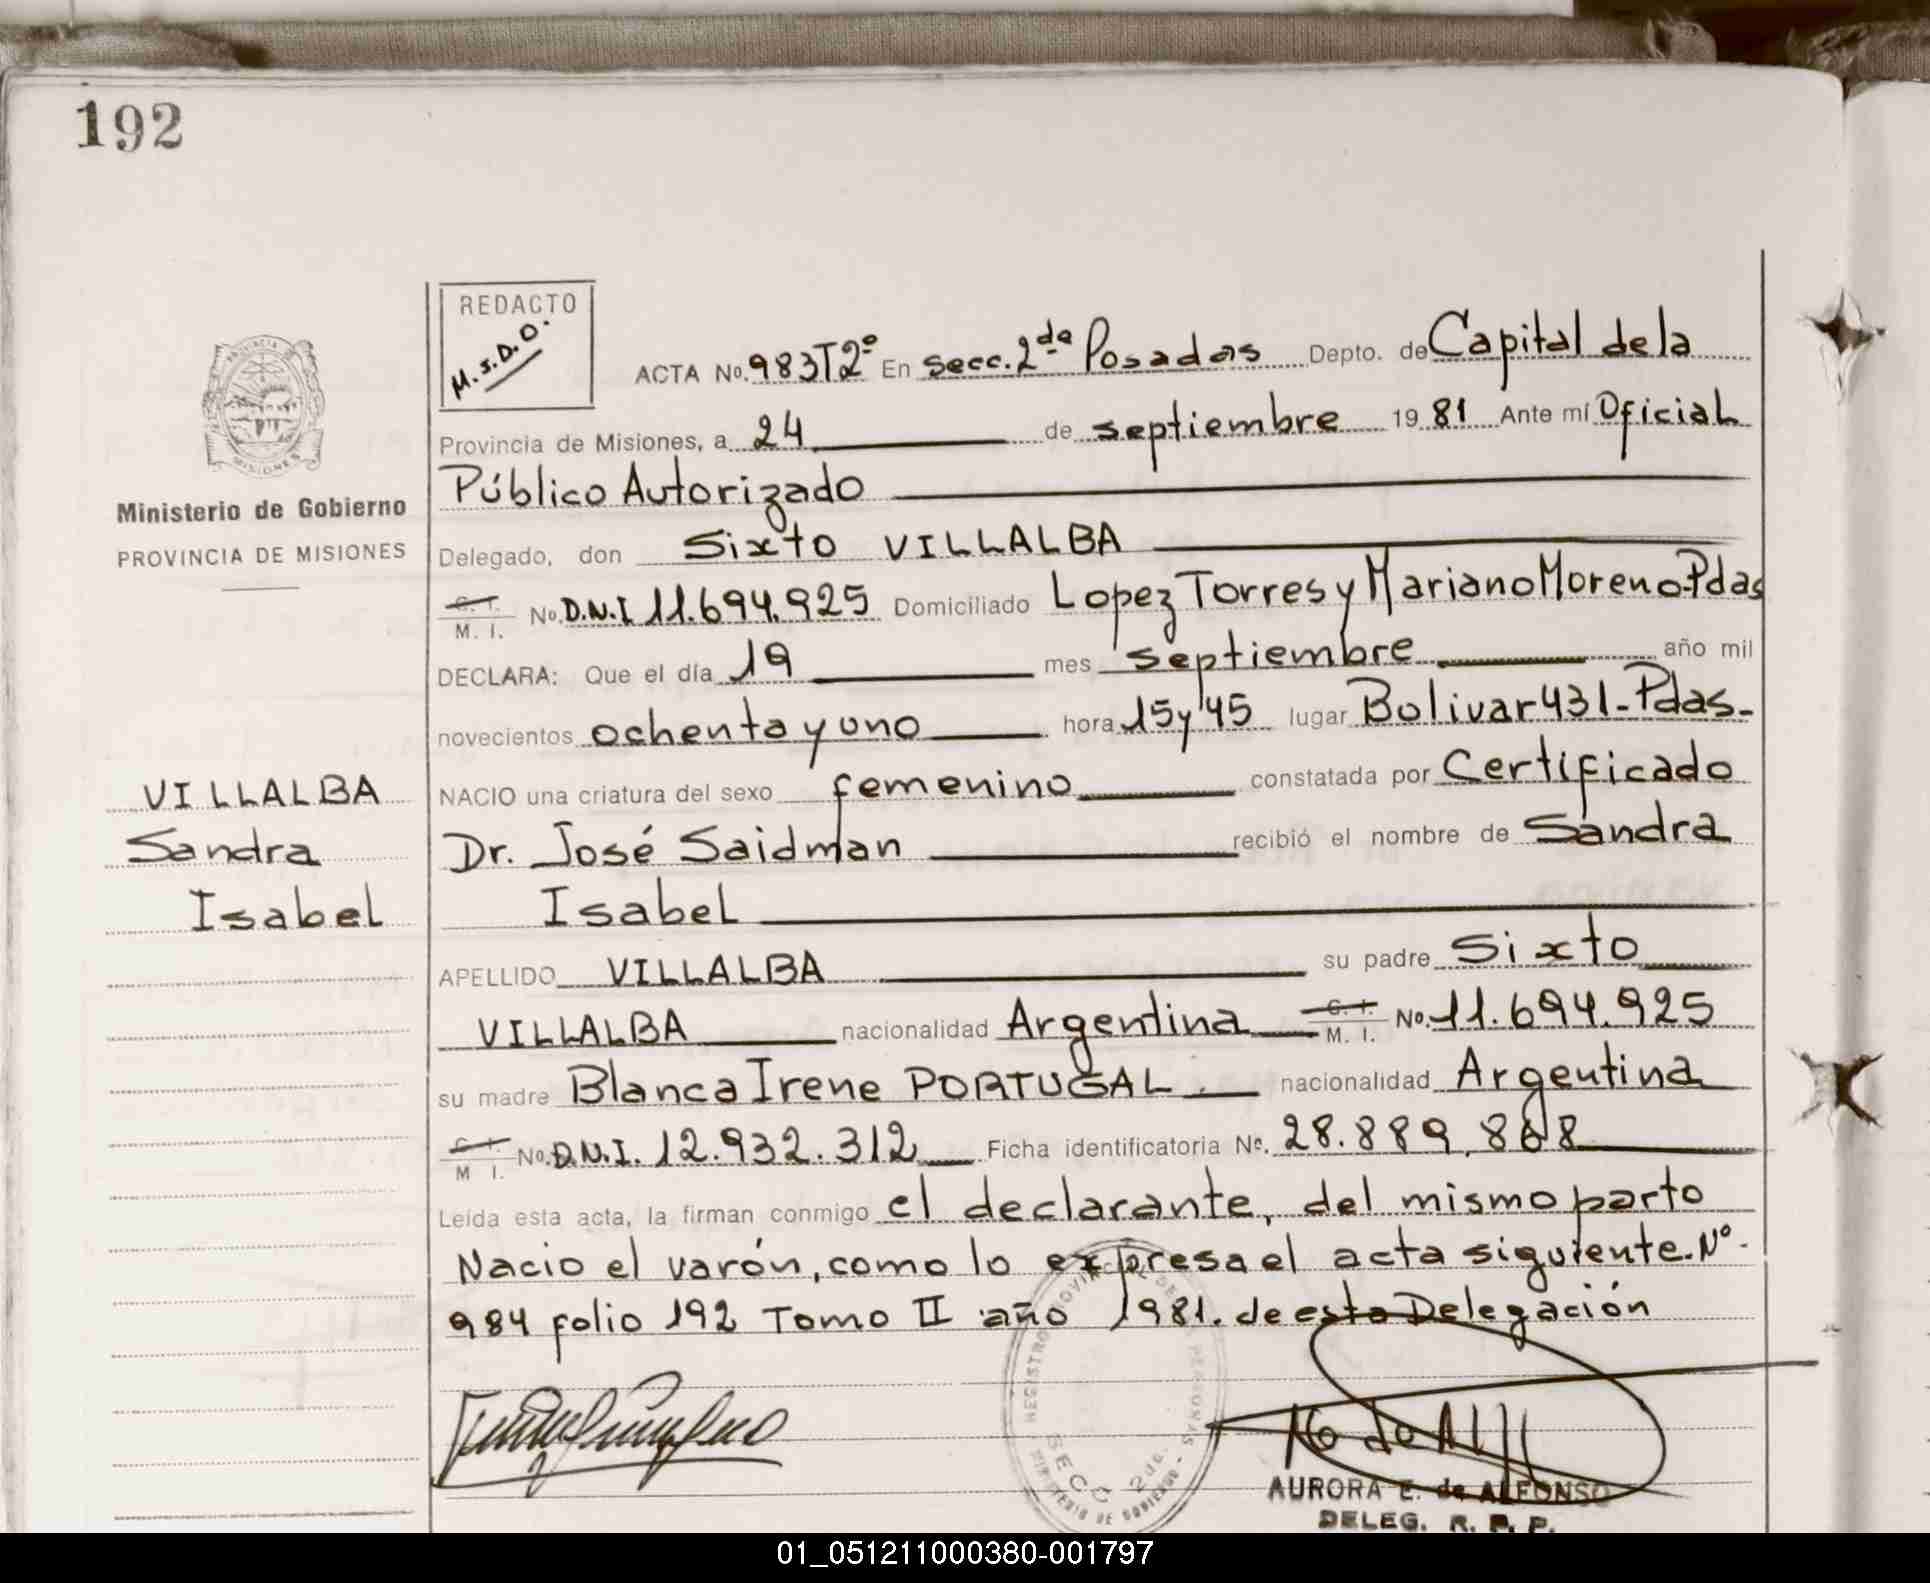 192
REDACTO
M.S.D.O.
ACTA No. 983 T2º En Secc. 2da Posadas Depto. de Capital de la
Provincia de Misiones, a 24 de septiembre 1981 Ante mí Oficial
Público Autorizado
Delegado, don Sixto VILLALBA
C. I. / M. I. No. D.N.I 11.694.925 Domiciliado Lopez Torres y Mariano Moreno-Pdas
DECLARA: Que el día 19 mes septiembre año mil
novecientos ochenta y uno hora 15 y 45 lugar Bolivar 431-Pdas-
NACIO una criatura del sexo femenino constatada por Certificado
Dr. José Saidman recibió el nombre de Sandra
Isabel
APELLIDO VILLALBA su padre Sixto
VILLALBA nacionalidad Argentina C. I. / M. I. No. 11.694.925
su madre Blanca Irene PORTUGAL. nacionalidad Argentina
C. I. / M I. No. D.N.I. 12.932.312 Ficha identificatoria No. 28.889.868
Leída esta acta, la firman conmigo el declarante, del mismo parto
Nacio el varón, como lo expresa el acta siguiente. Nº.
984 folio 192 Tomo II año 1981. de esta Delegación
MISIONES
Ministerio de Gobierno
PROVINCIA DE MISIONES
VILLALBA
Sandra
Isabel
REGISTRO PROVINCIAL DE PERSONAS
SECC 2da.
MINISTERIO DE GOBIERNO
AURORA E. de ALFONSO
DELEG. R. P. P.
01_051211000380-001797